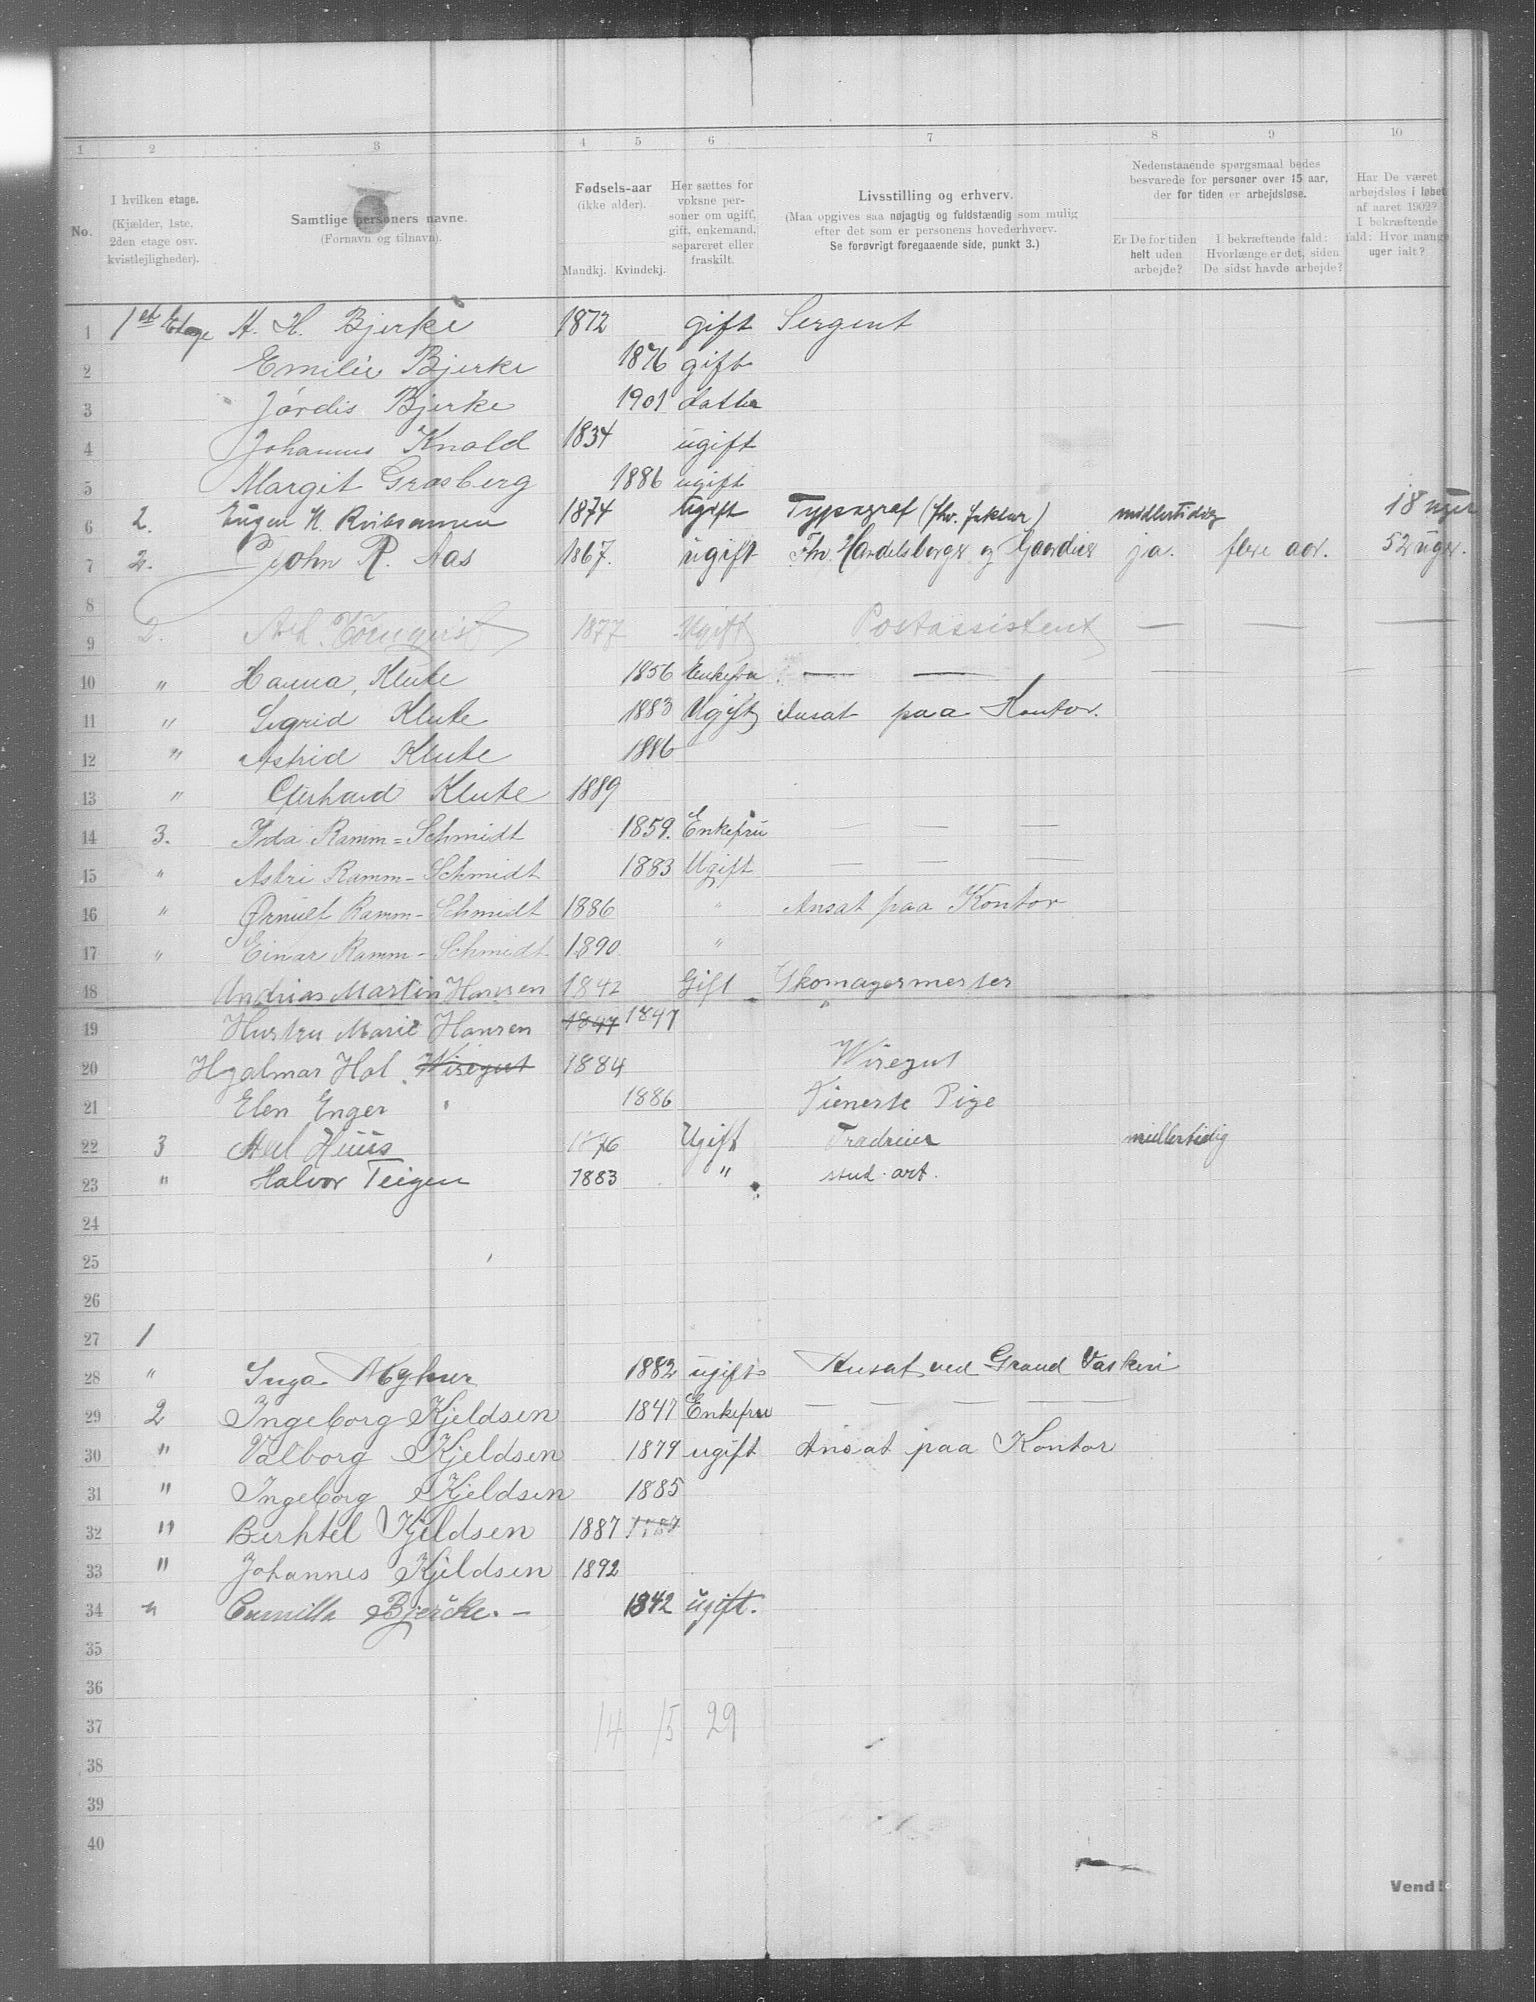 1 2 3 4 5 6 7 8 9 10
No.
I hvilken etage.
(Kjælder, 1ste,
2den etage osv.
kvistlejligheder).
Samtlige personers navne.
(Fornavn og tilnavn).
Fødsels-aar
(ikke alder).
Mandkj. Kvindekj.
Her sættes for
voksne per-
soner om ugift,
gift, enkemand,
separeret eller
fraskilt.
Livsstilling og erhverv.
(Maa opgives saa nøjagtig og fuldstændig som mulig
efter det som er personens hovederhverv.
Se forøvrigt foregaaende side, punkt 3.)
Nedenstaaende spørgsmaal bedes
besvarede for personer over 15 aar,
der for tiden er arbejdsløse.
Er De for tiden
helt uden
arbejde?
I bekræftende fald:
Hvorlænge er det, siden
De sidst havde arbejde?
Har De været
arbejdsløs i løbet
af aaret 1902?
I bekræftende
fald: Hvor mange
uger ialt?
1 1st Etage H. H. Bjerke 1872 gift Sergent
2 Emilie Bjerke 1876 gift
3 Jórdis Bjerke 1901 datter
4 Johannes Knold 1834 ugift
5 Margit Grasberg 1886 ugift
6 2. Eugen H 1874 ugift Typograf (fhv. faktor) midlertidig 18 uger
7 2. John R. Aas 1867. ugift Fhv. Handelsborger og Gaardeier ja. flere aar. 52 uger.
8
9 2. Törnqvist 1877 Ugift Postassistent — — —
10 " Hanna Klute 1856 Enkefru — —
11 " Sigrid Klute 1883 Ugift Ansat paa Kontor.
12 " Astrid Klute 1886
13 " Gerhard Klute 1889
14 3. Ida Ramm=Schmidt 1859. Enkefru — — —
15 " Astri Ramm-Schmidt 1883 Ugift — — —
16 " Ørnulf Ramm-Schmidt 1886 " Ansat paa Kontor
17 " Einar Ramm-Schmidt 1890 "
18 Andrias Martin Hansen 1842 Gift Skomagermester
19 Hustru Marie Hansen 1847 1847 "
20 Hjalmar Hol Wisegut 1884 Wisegut
21 Elen Enger 1886 Tieneste Pige
22 3 Axel Huus 1876 Ugift midlertidig
23 " Halvor Teigen 1883 " stud. art.
24
25
26
27 1
28 " Inga 1882 ugift Ansat ved Grand Vaskeri
29 2 Ingeborg Kjeldsen 1847 Enkefru — — — — —
30 " Valborg Kjeldsen 1879 ugift Ansat paa Kontor
31 " Ingeborg Kjeldsen 1885
32 " Berhtel Kjeldsen 1887 1887
33 " Johannes Kjeldsen 1892
34 " Camilla Bjercke. — 1842 ugift.
35
36
37 14 15 29
38
39
40
Vend!